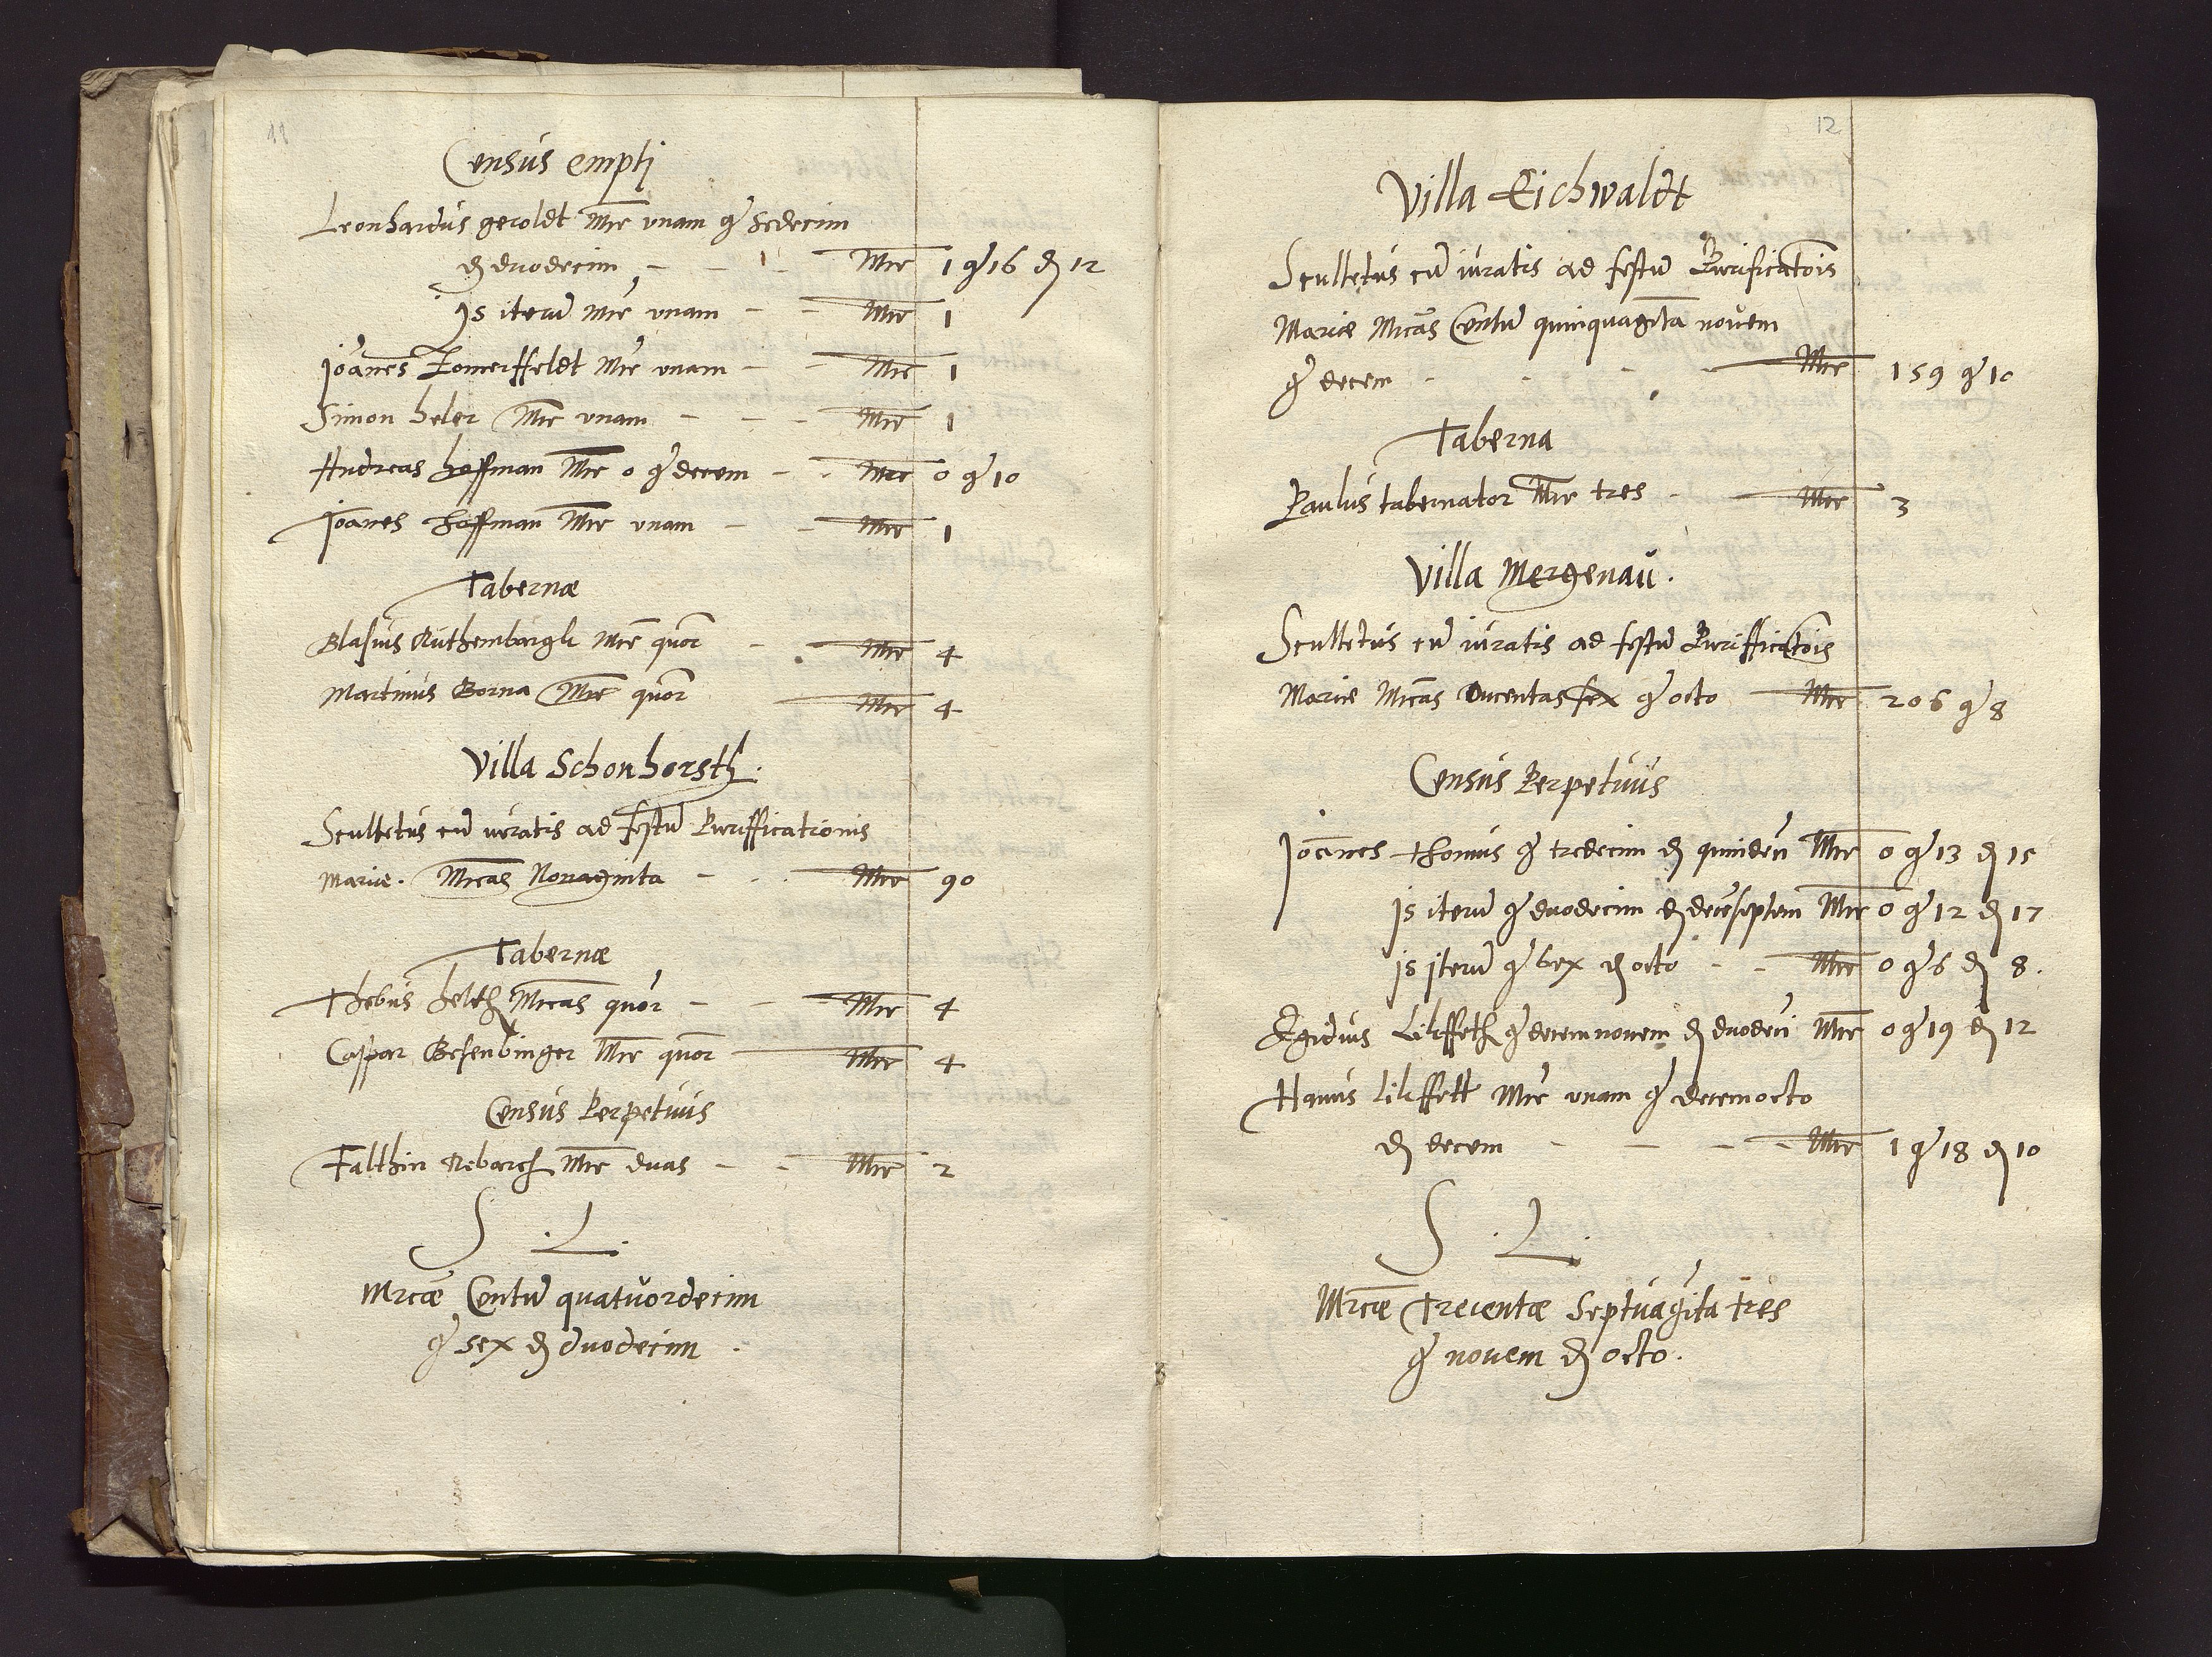 11
Census empti
Leonhardus geroldt Mrc unam g sedecim
d duodecim - - - Mrc 1 g 16 d 12
Is iterū Mrc unam - - Mrc 1
Joānes Zomerffeldt Mrc unam - - Mrc 1
Simon heler Mrc unam - - - Mrc 1
Andreas hoffman Mrc 0 g decem - - Mrc 0 g 10
Joānes hoffman Mrc unam - - Mrc 1
Tabernæ
Blasius Mrc quor - - Mrc 4
Martinus Borna Mrc quor Mrc 4
Villa Schonhorsth.
Scultetus cū iuratis ad festū Purifficationis
Mariæ. Mrcas Nonaginta - - - Mrc 90
Tabernæ
helth Mrcas quor - - - Mrc 4
Caspar Mrc quor Mrc 4
Census Perpetuus
Falthin Mrc duas - - Mrc 2
S . L .
Mrcæ Centū quatuordecim
g sex d duodecim .
12
Villa Eichwaldt
Scultetus cū iuratis ad festū Purificatōis
Mariæ Mrcas Centū quinquagīta novem
g decem - - - - Mrc 159 g 10
Taberna
Paulus tabernator Mrc tres - Mrc 3
Villa Mergenau.
Scultetus cū iuratis ad festū Purifficatōis
Mariæ Mrcas Ducentas sex g octo Mrc 206 g 8
Census Perpetuus
Joānes Thomus g tredecim d quindeci Mrc 0 g 13 d 15
Is iterū g duodecim d deceseptem Mrc 0 g 12 d 17
Is iterū g sex d octo - - Mrc 0 g 6 d 8.
Egidius Lilffeth g decemnovem d duodeci Mrc 0 g 19 d 12
Hanus lilffett Mrc unam g decemocto
d decem - - - - Mrc 1 g 18 d 10
S . L .
Mrcæ Trecentæ Septuagīta tres
g novem d octo.